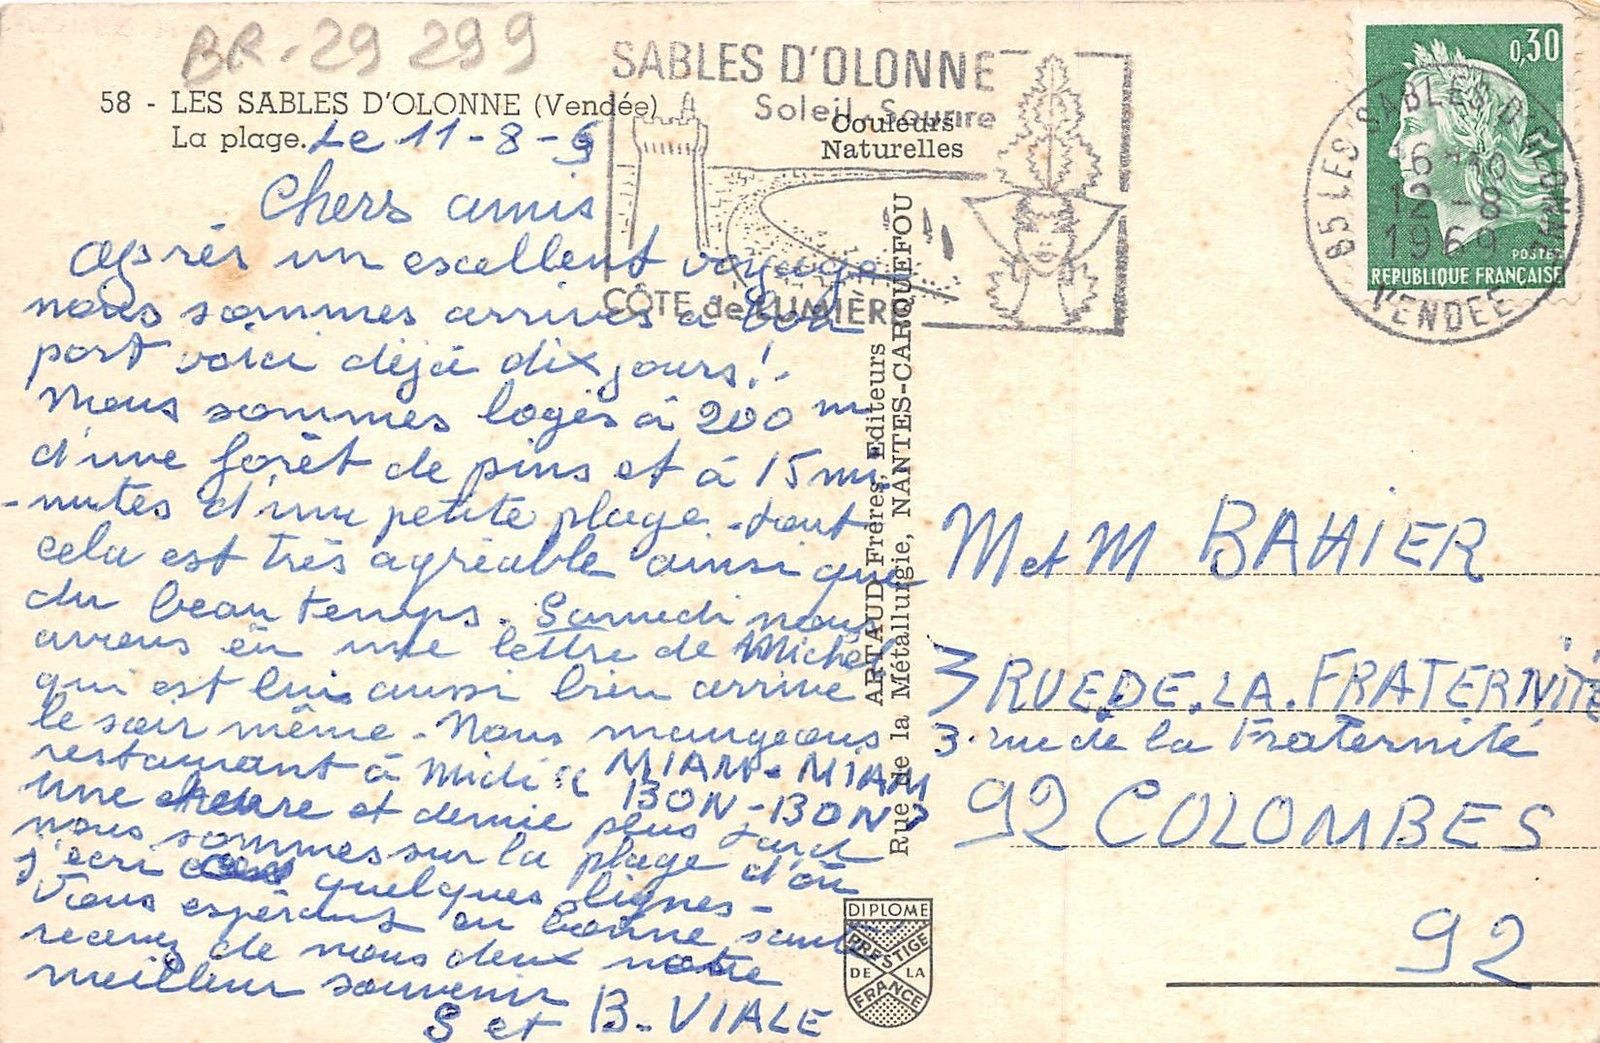 BR-29 299
58 - LES SABLES D'OLONNE (Vendée)
La plage.
Couleurs
Naturelles
SABLES D'OLONNE
Soleil - Sourire
CÔTE de LUMIÈRE
0,30
POSTES
REPUBLIQUE FRANÇAISE
85 LES SABLES D'OLONNE
16 H 30
12 - 8
1969
VENDEE
Le 11-8-6
Chers amis
Après un excellent voyage
nous sommes arrivés à bon
port voici déjà dix jours!-
Nous sommes logés à 200 m
d'une forêt de pins et à 15 mi
-nutes d'une petite plage - tout
cela est très agréable ainsi que
du beau temps. Samedi nous
avons eu une lettre de Michel
qui est lui aussi bien arrivé
le soir même - Nous mangeons
restaurant à Midi " MIAM-MIAM
BON-BON"
une heure et demie plus tard
nous sommes sur la plage d'où
j'écri ces quelques lignes-
Vous espérant en bonne santé
recevez de nous deux notre
meilleur souvenir
S et B-VIALE
ARTAUD Frères, Editeurs
Rue de la Métallurgie, NANTES-CARQUEFOU
DIPLOME
PRESTIGE
DE LA
FRANCE
M et M BAHIER
3 RUE DE LA FRATERNITE
3 rue de la Fraternité
92 COLOMBES
92